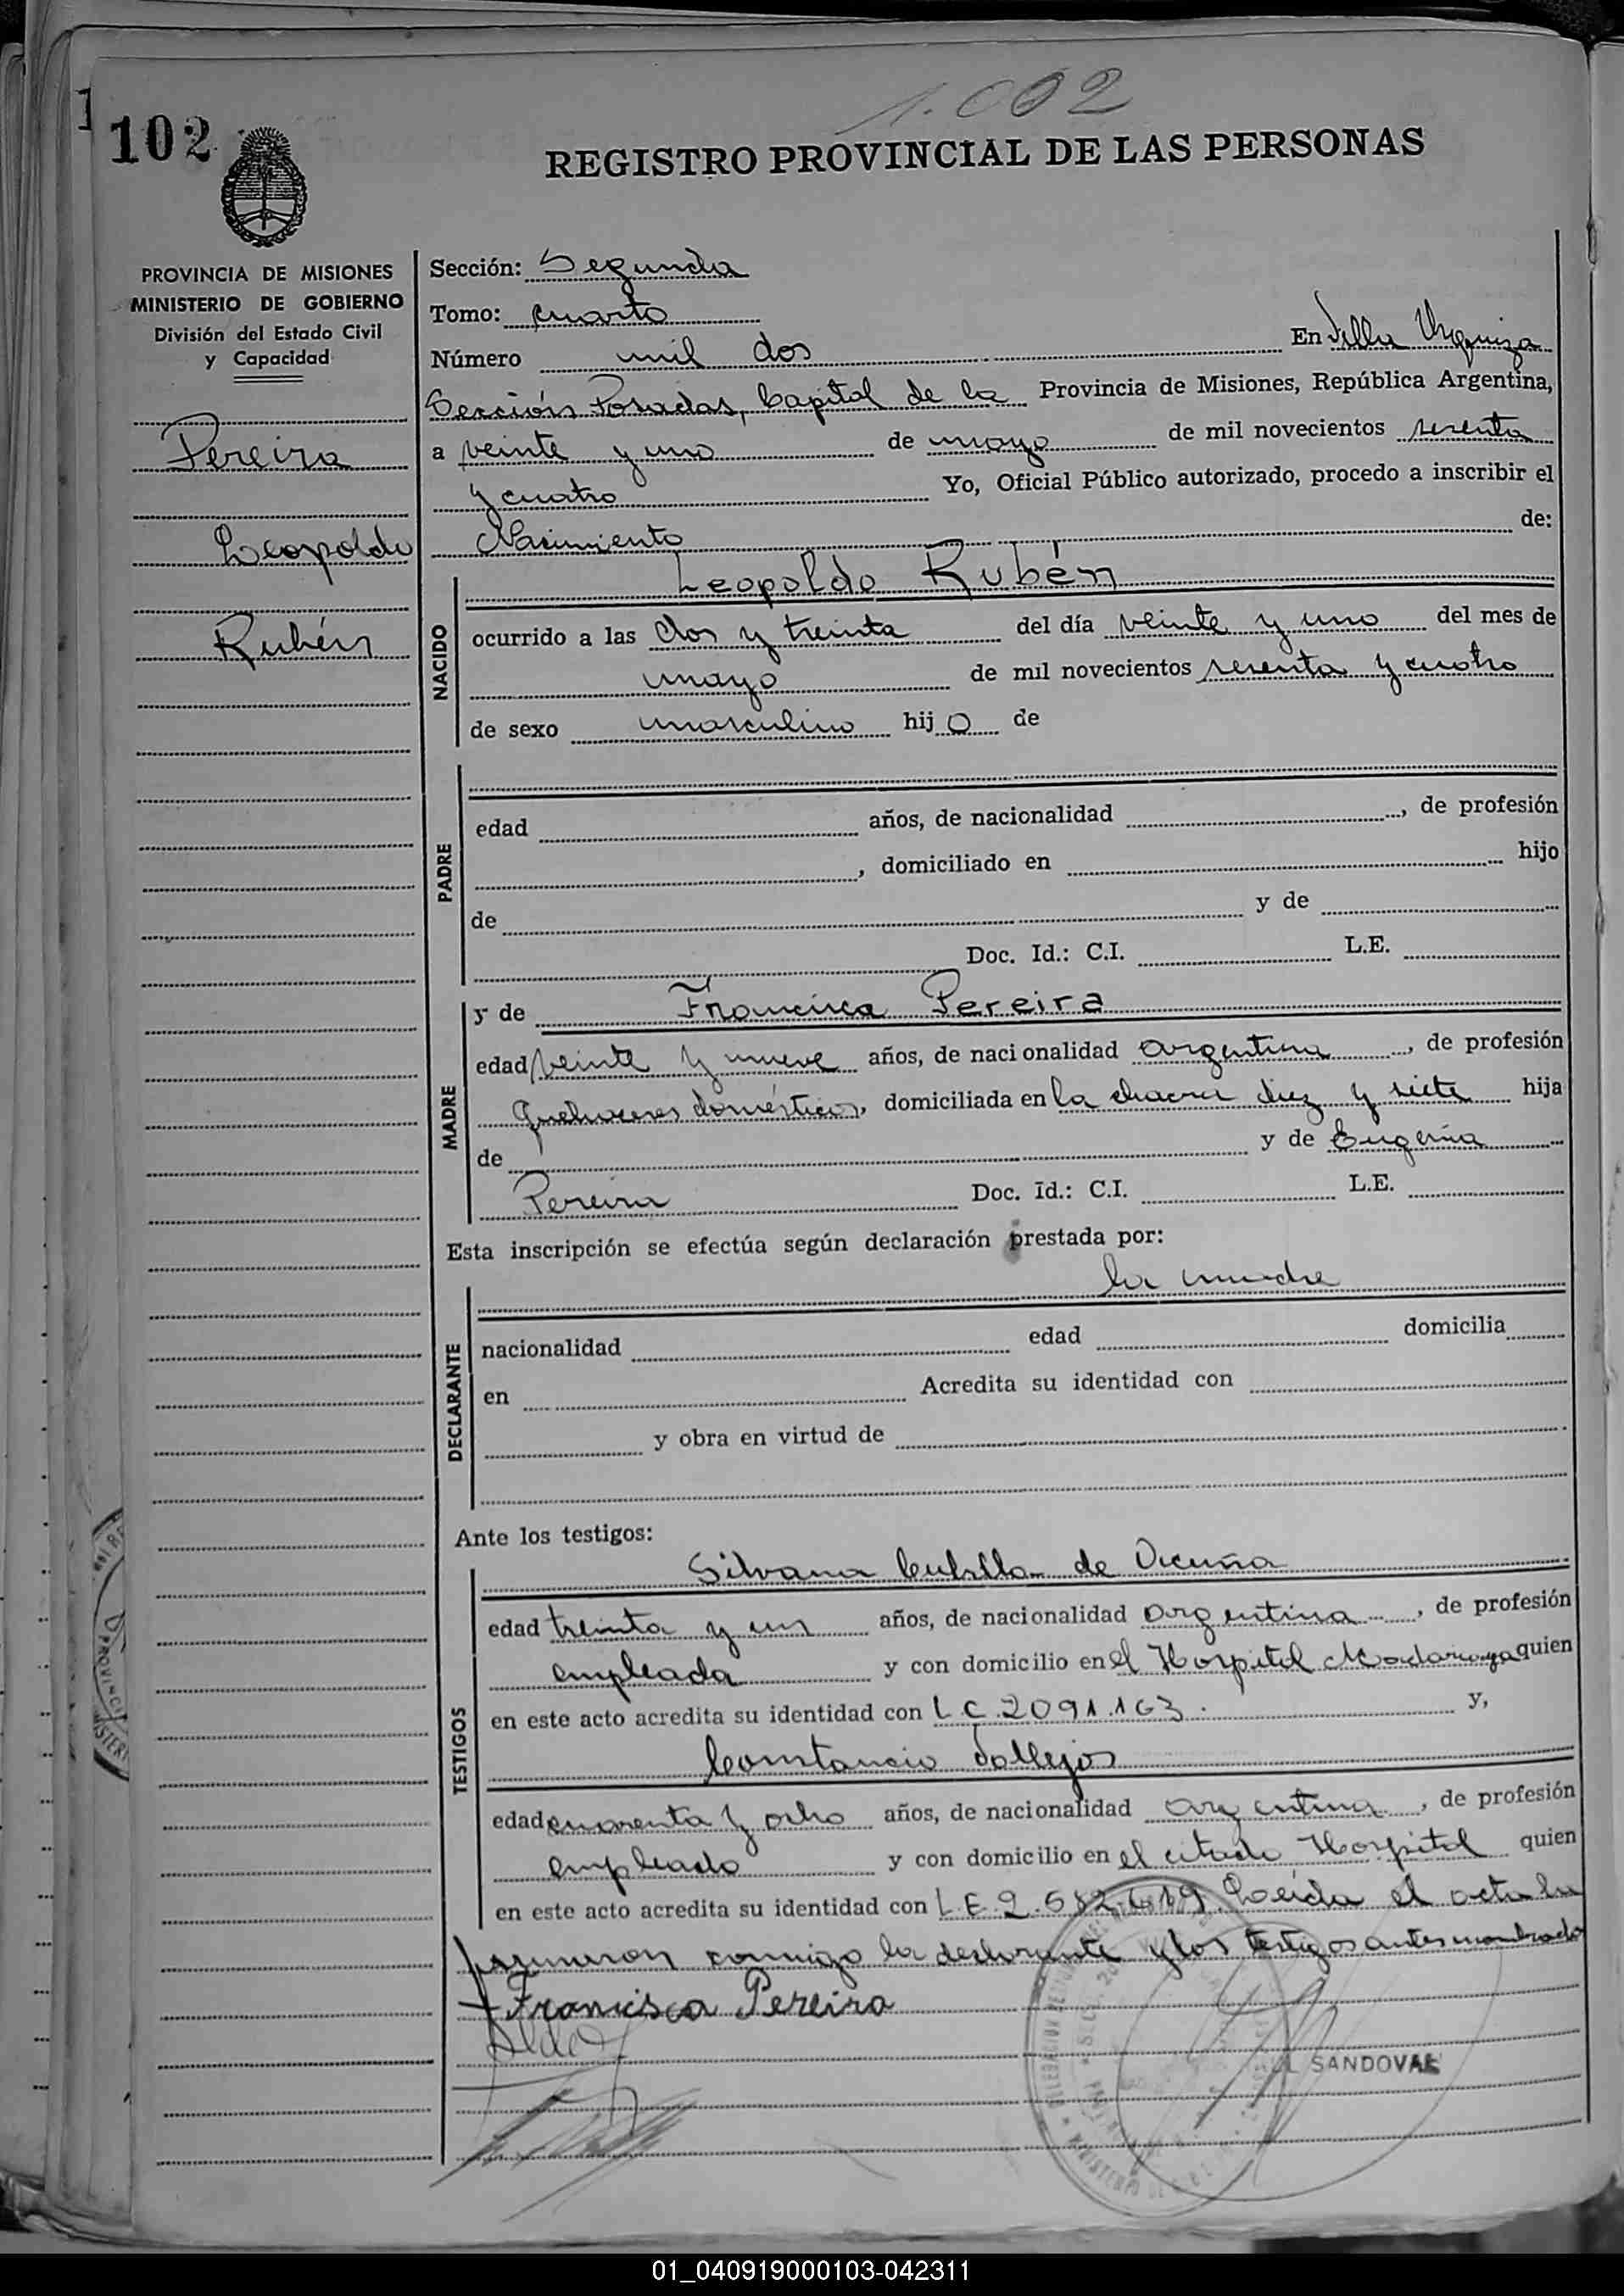 1.002
102
REGISTRO PROVINCIAL DE LAS PERSONAS
PROVINCIA DE MISIONES
MINISTERIO DE GOBIERNO
División del Estado Civil
y Capacidad
Pereira
Leopoldo
Rubén
Sección: Segunda
Tomo: cuarto
Número mil dos En Villa Urquiza
Sección Posadas, Capital de la Provincia de Misiones, República Argentina,
a veinte y uno de mayo de mil novecientos sesenta
y cuatro Yo, Oficial Público autorizado, procedo a inscribir el
Nacimiento de:
NACIDO
Leopoldo Rubén
ocurrido a las dos y treinta del día veinte y uno del mes de
mayo de mil novecientos sesenta y cuatro
de sexo masculino hijo de
PADRE
edad años, de nacionalidad , de profesión
, domiciliado en hijo
de y de
Doc. Id.: C.I. L.E.
MADRE
y de Francisca Pereira
edad veinte y nueve años, de nacionalidad argentina, de profesión
quehaceres domésticos, domiciliada en la chacra diez y siete hija
de y de Eugenia
Pereira Doc. Id.: C.I. L.E.
Esta inscripción se efectúa según declaración prestada por:
la madre
DECLARANTE
nacionalidad edad domicilia
en Acredita su identidad con
y obra en virtud de
Ante los testigos:
TESTIGOS
Silvana de Vicuña
edad treinta y un años, de nacionalidad argentina, de profesión
empleada y con domicilio en el Hospital Madariaga quien
en este acto acredita su identidad con L.C. 2091.163. y,
Constancio Vallejos
edad cuarenta y ocho años, de nacionalidad argentina, de profesión
empleado y con domicilio en el citado Hospital quien
en este acto acredita su identidad con L.E. 2.582.619. Leída el acta la
firmaron conmigo la declarante y los testigos antes nombrados
Francisca Pereira
SANDOVAL
01_040919000103-042311